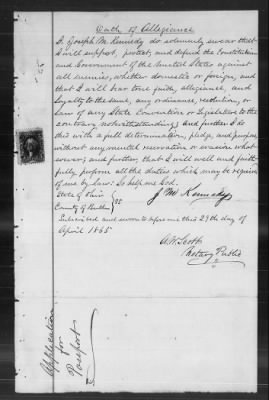 Oath of Allegiance
I, Joseph M. Kennedy do solemnly swear that
I will support, protect, and defend the Constitution
and Government of the United States against
all enemies, whether domestic or foreign, and
that I will bear true faith, allegiance, and
loyalty to the same, any ordinance, resolution, or
law of any State Convention or Legislature to the
contrary notwithstanding: and further I do
this with a full determination, pledge, and purpose
without any mental reservation or evasion what-
soever; and further, that I will well and faith-
fully perform all the duties which may be required
of me by law: So help me God.
State of Ohio
County of Butler } SS
J M Kennedy
Subscribed and sworn to before me this 29th day of
April 1865
A. W. Scott
Notary Public
Application
for
Passport